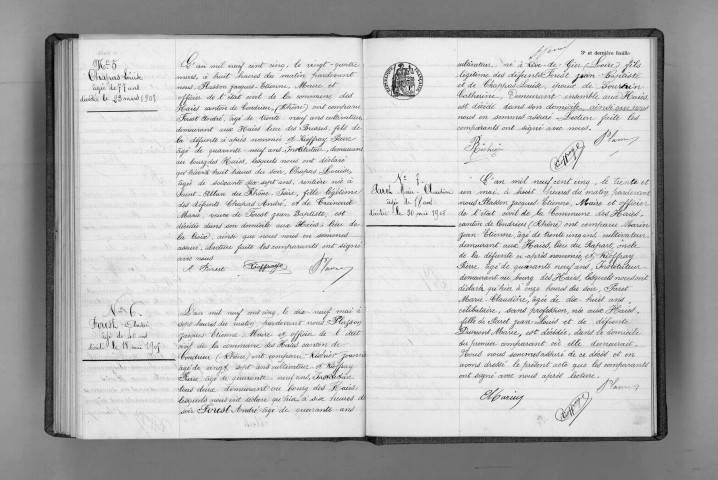 N° 5
Chapas Louise
âgée de 77 ans
décédée le 23 mars 1905
L'an mil neuf cent cinq, le vingt-quatre
mars, à huit heures du matin pardevant
nous, Plasson Jacques Etienne, Maire et
officier de l'état civil de la commune des
Haies canton de Condrieu, (Rhône) ont comparu
Forest André, âgé de trente neuf ans cultivateur
demeurant aux Haies lieu des fils de
la défunte ci après nommée et Koffray
Pierre
âgé de quarante neuf ans, Instituteur, demeurant
au bourg des Haies, lesquels nous ont déclaré
qu'hier à huit heures du soir, Chapas Louise,
âgée de soixante dix sept ans, rentière née à
Saint Alban du Rhône, Isère, fille légitime
des défunts Chapas André, et de
Marie, veuve de Forest Jean Baptiste, est
décédée dans son domicile aux Haies lieu de
la Croix, ainsi que nous nous en sommes
assuré. Lecture faite les comparants ont signé
avec nous
A Forest Koffray
N° 6
Forest André
âgé de 40 ans
décédé le 18 mai 1905
L'an mil neuf cent cinq, le dix neuf mai à
sept heures du matin pardevant nous Plasson
Jacques Etienne Maire et officier de l'état
civil de la commune des Haies canton de
Condrieu (Rhône) ont comparu
âgé de vingt sept ans cultivateur et Koffray
Pierre, âgé de quarante neuf ans, Instituteur
tous deux demeurant au bourg des Haies,
lesquels nous ont déclaré qu'hier à six heures du
soir Forest André âgé de quarante ans
3e et dernière feuille
cultivateur, né à Rive-de-Gier (Loire) fils
légitime des défunts Forest Jean Baptiste
et de Chappas Louise, époux de
Catherine, demeurant ensemble aux Haies
est décédé dans son domicile ainsi que nous
nous en sommes assuré Lecture faite les
comparants ont signé avec nous.
Koffray
N° 7
Marie Claudine
âgée de 18 ans
décédée le 30 mai 1905
L'an mil neuf cent cinq, le trente et
un mai, à huit heures du matin, pardevant
nous Plasson Jacques Etienne, Maire et officier
de l'état civil de la Commune des Haies,
canton de Condrieu (Rhône) ont comparu Marin
Jean Etienne, âgé de trente cinq ans cultivateur
demeurant aux Haies, lieu du Rafart, oncle
de la défunte ci après nommée, et Koffray
Pierre, âgé de quarante neuf ans, Instituteur
demeurant au bourg des Haies, lesquels nous ont
déclaré qu'hier à onze heures du soir, Foret
Marie Claudine, âgée de dix huit ans
célibataire, sans profession, née aux Haies,
fille de Foret Jean Louis et de défunte
Dumont Marie, est décédée, dans le domicile
du premier comparant où elle demeurait.
Nous nous sommes assuré de ce décès et en
avons dressé le présent acte que les comparants
ont signé avec nous après lecture.
Marin
Koffray